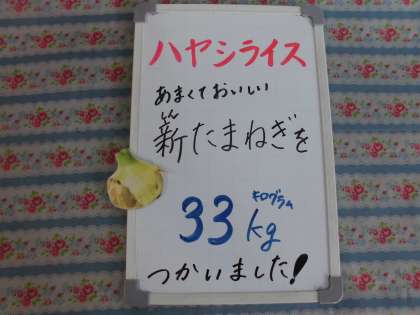 ハヤシライス
あまくておいしい
しん
新たまねぎを
キログラム
33kg
つかいました!